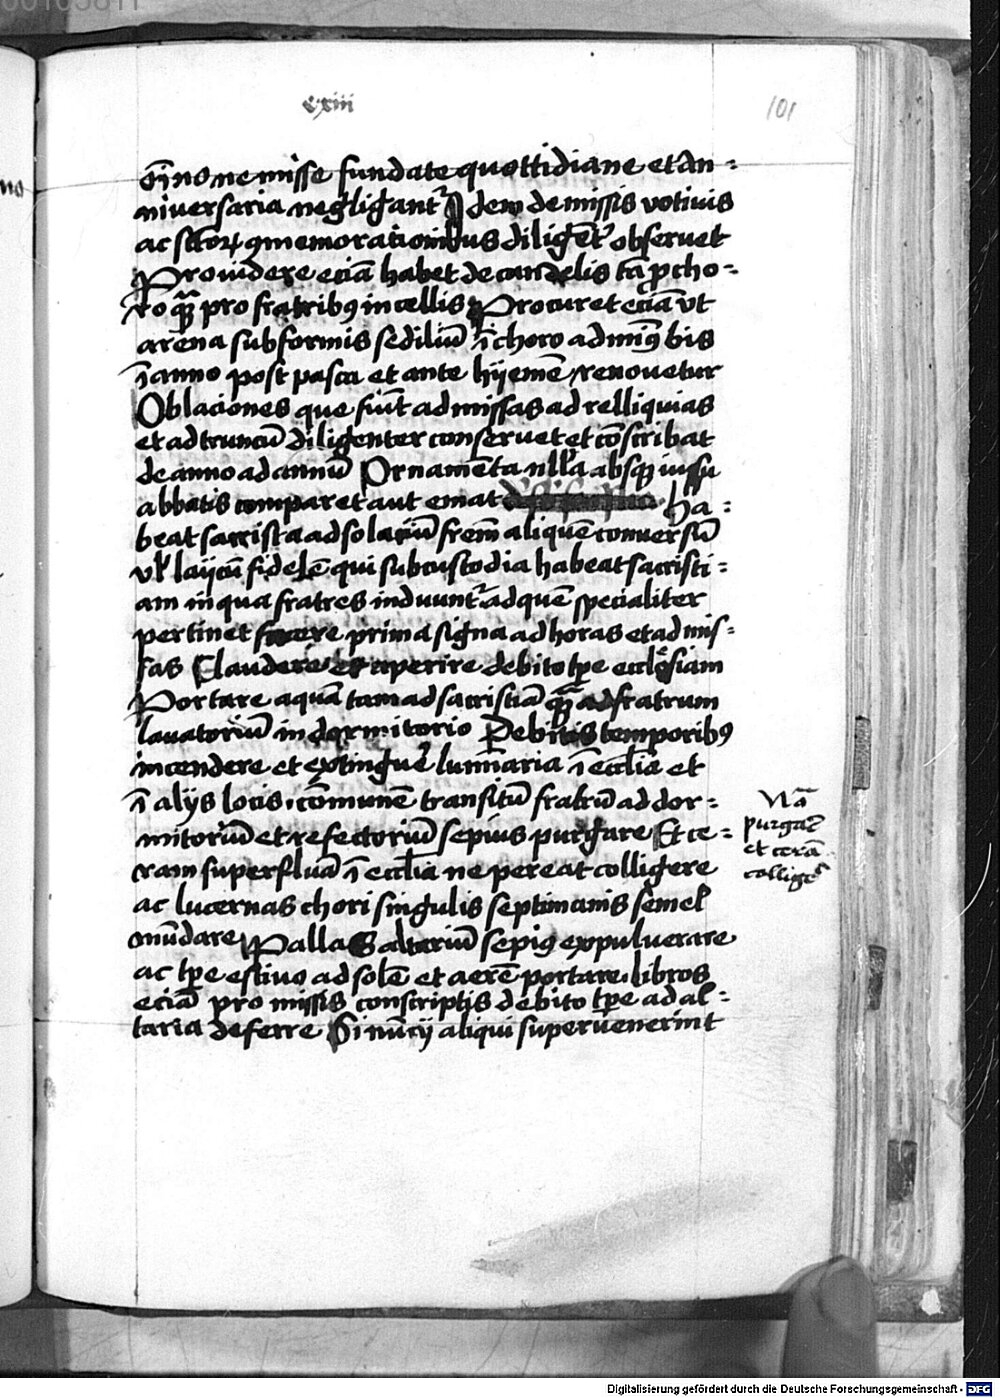 cxiii
101
o̅i̅no ne misse fundate quottidiane et an=
niversaria negligant᷑ Idem de missis votivis
ac sctoꝝ ꝯmemorationibus diligēt᷑ observet
Providere eciā habet de candelis tā ꝓ cho=
ro qᷓꝫ pro fratribꝯ in cellis Procuret eciā vt
arena sub formis sediliū ī choro ad minꝯ bis
ī anno post pasca et ante hyemē renovetur
Oblaciones que fiūt ad missas ad relliquias
et ad truncū diligenter conservet et cōscribat
de anno ad annū Ornamēta nlla absqꝫ iussu
abbatis comparet aut emat ha=
beat sacrista ad solaciū frem̄ aliquē conversū
vl laijcū fidelē qui sub custodia habeat sacristi=
am in qua fratres induunt᷑ ad quē specialiter
pertinet facere prima signa ad horas et ad mis=
sas Claudere et aperire debito tp̄e ecclesiam
Portare aquā tam ad sacristiā qᷓꝫ ad fratrum
lavatoriū in dormitorio Debitis temporibꝯ
incendere et extinguē luminaria ī ecclīa et
ī alijs locis. cōmunē transitū fratrū ad dor=
mitoriū et refectoriū sepius purgare Et ce=
ram superfluā ī ecclīa ne pereat colligere
ac lucernas chori singulis septimanis semel
mūdare Pallas altariū sepiꝯ expulverare
ac tp̄e estivo ad solē et aerē portare. libros
eciā pro missis conscriptis debito tp̄e ad al=
taria deferre Si nūcij aliqui supervenerint
Viā
purgaᷓ
et cerā
collige᷑
Digitalisierung gefördert durch die Deutsche Forschungsgemeinschaft - DFG